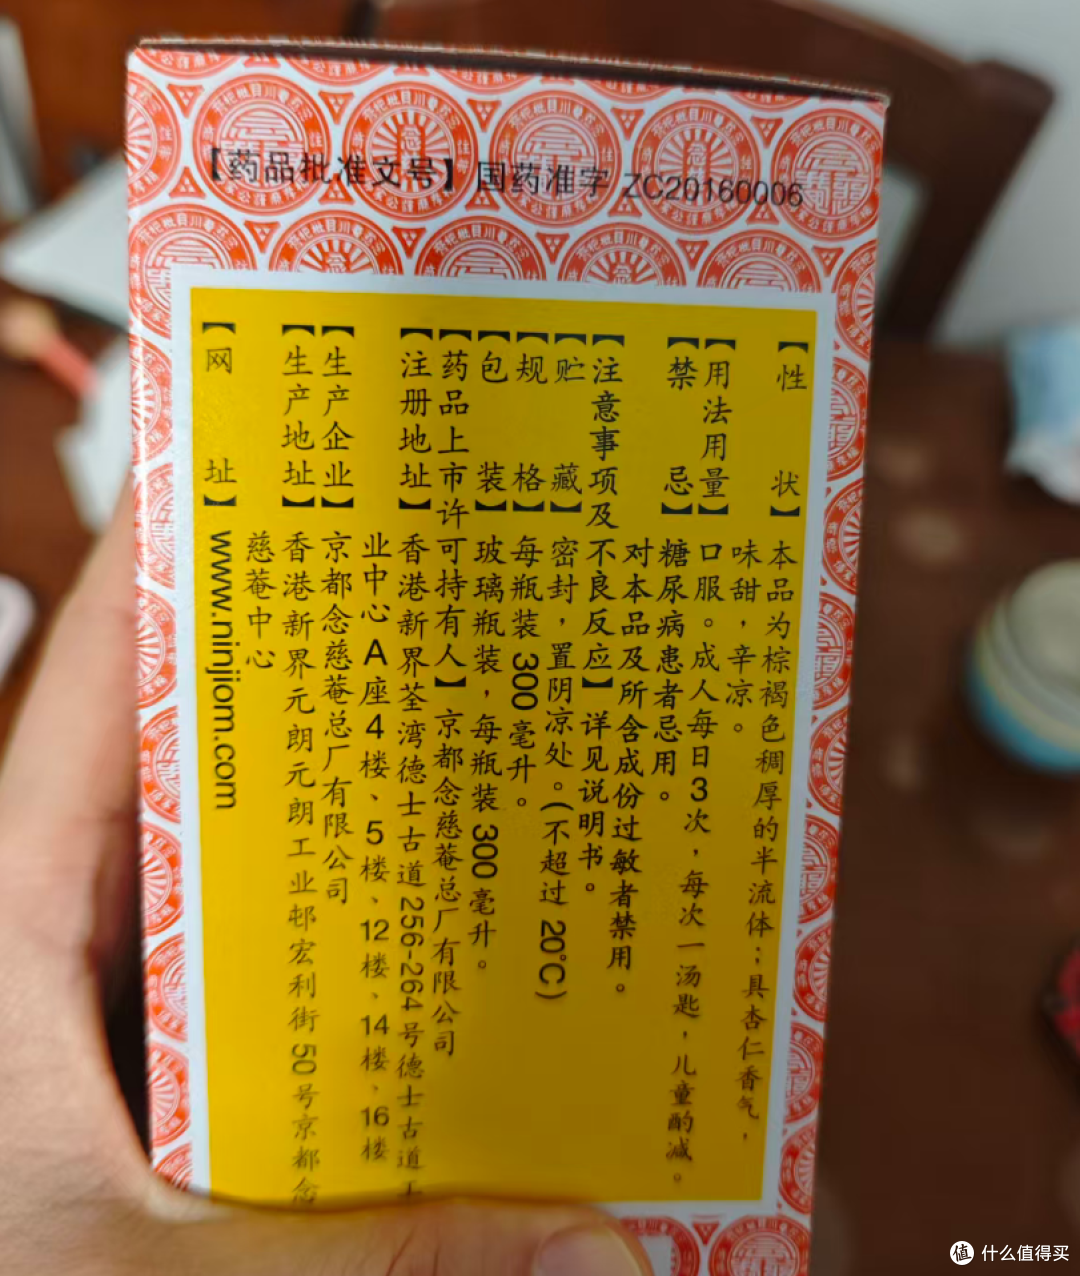 【药品批准文号】国药准字 ZC20160006
【性状】本品为棕褐色稠厚的半流体；具杏仁香气，
味甜，辛凉。
【用法用量】口服。成人每日3次，每次一汤匙，儿童酌减。
【禁忌】糖尿病患者忌用。
对本品及所含成份过敏者禁用。
【注意事项及不良反应】详见说明书。
【贮藏】密封，置阴凉处。(不超过 20°C)
【规格】每瓶装 300 毫升。
【包装】玻璃瓶装，每瓶装 300 毫升。
【药品上市许可持有人】京都念慈菴总厂有限公司
【注册地址】香港新界荃湾德士古道 256-264 号德士古道工
业中心 A 座 4 楼、5 楼、12 楼、14 楼、16 楼
【生产企业】京都念慈菴总厂有限公司
【生产地址】香港新界元朗元朗工业邨宏利街 50 号京都念
慈菴中心
【网址】www.ninjiom.com
值 什么值得买